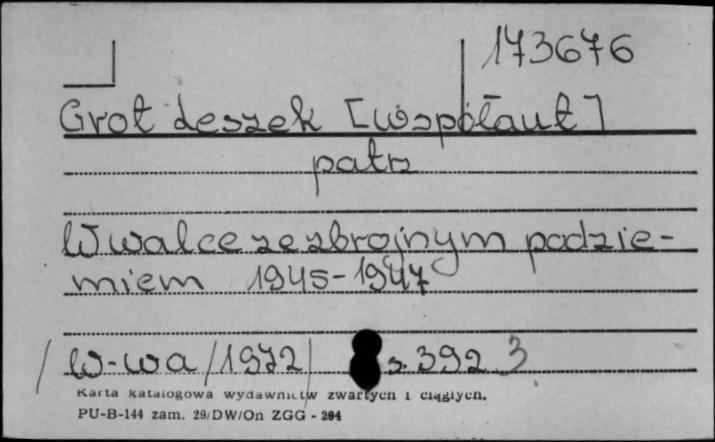 173676
Grot Leszek [współaut]
patrz
W walce ze zbrojnym podzie-
miem 1945-1947
W-wa /1972/ s. 392 3
Karta katalogowa wydawnictw zwartych i ciągłych.
PU-B-144 zam. 29/DW/On ZGG - 294